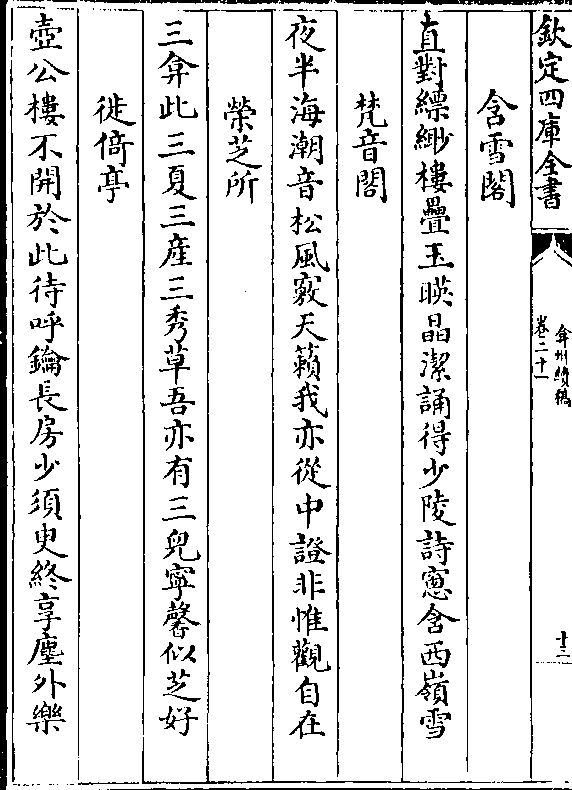 欽定四庫全書
弇州續稿
卷二十一
十二
含雪閣
直對縹緲樓疊玉暎晶潔誦得少陵詩窓含西嶺雪
梵音閣
夜半海潮音松風竅天籟我亦從中證非惟觀自在
榮芝所
三弇此三夏三產三秀草吾亦有三兒寧馨似芝好
徙倚亭
壺公樓不開於此待呼鑰長房少須臾終享塵外樂